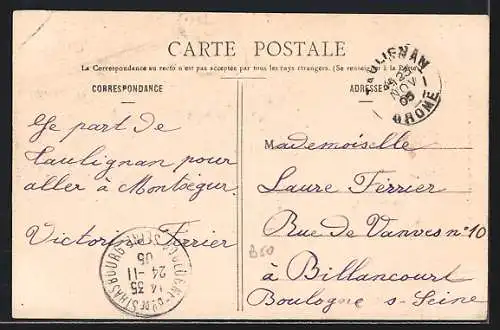 CARTE POSTALE
La Correspondance au recto n'est pas acceptée par tous les pays étrangers. (Se renseigner à la Poste)
CORRESPONDANCE
ADRESSE
TAULIGNAN
23
NOV
05
DROME
Je part de
Taulignan pour
aller à Montségur.
Victorin Ferrier
Mademoiselle
Laure Ferrier
Rue de Vanves n° 10
à Billancourt
Boulogne s-Seine
B50
14 35
24-11
05
STRASBOURG